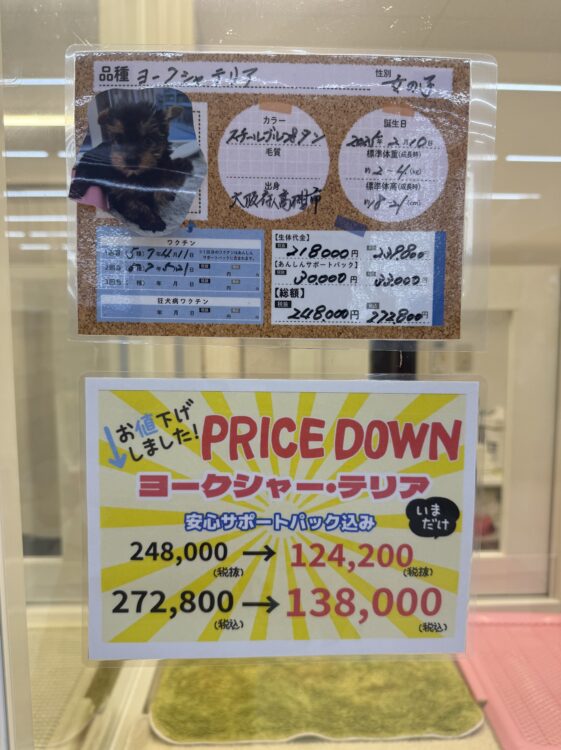 品種 ヨークシャーテリア 性別 女の子
カラー
スチールブルータン
毛質
出身
大阪府高槻市
誕生日
2月10日
標準体重(成長時)
約2~4(kg)
標準体高(成長時)
約18~21(cm)
ワクチン
1回目
2回目
3回目
年 月 日
狂犬病ワクチン
年 月 日 円
【生体代金】
218000円 239800円
【あんしんサポートパック】
30,000円 33000円
【総額】
248,000円 272,800円
お値下げ
しました!
PRICE DOWN
ヨークシャー・テリア
安心サポートパック込み
いま
だけ
248,000(税抜)→124,200(税抜)
272,800(税込)→138,000(税込)